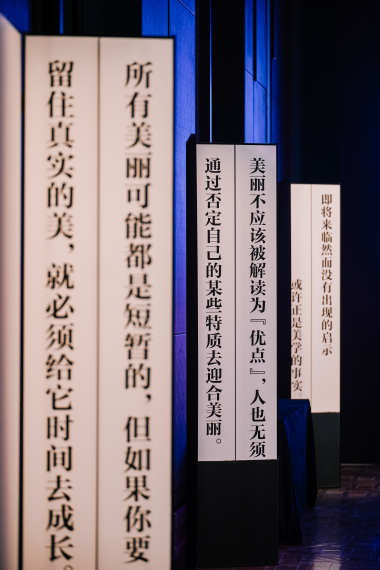 所有美丽可能都是短暂的，但如果你要
留住真实的美，就必须给它时间去成长。
美丽不应该被解读为『优点』，人也无须
通过否定自己的某些特质去迎合美丽。
即将来临然而没有出现的启示
或许正是美学的事实。